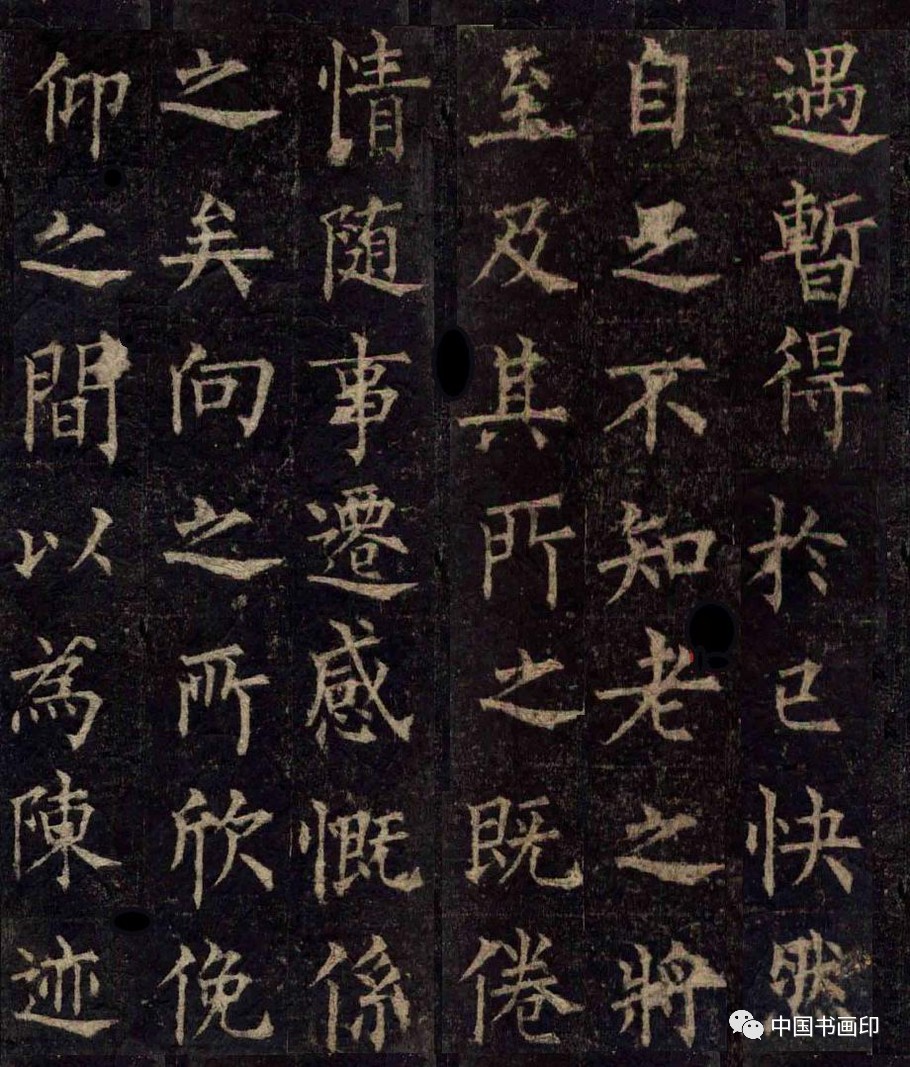 遇暫得於己快然
自足不知老之將
至及其所之既倦
情随事遷感慨係
之矣向之所欣俛
仰之間以為陳迹
中国书画印